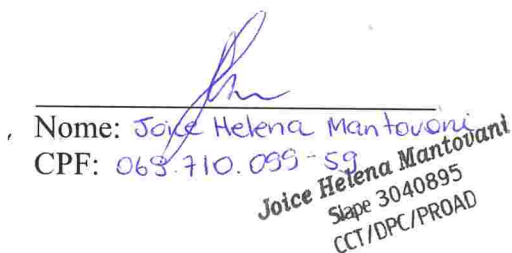 Nome: Joice Helena Mantovani
CPF: 069.710.099-59
Joice Helena Mantovani
Siape 3040895
CCT/DPC/PROAD